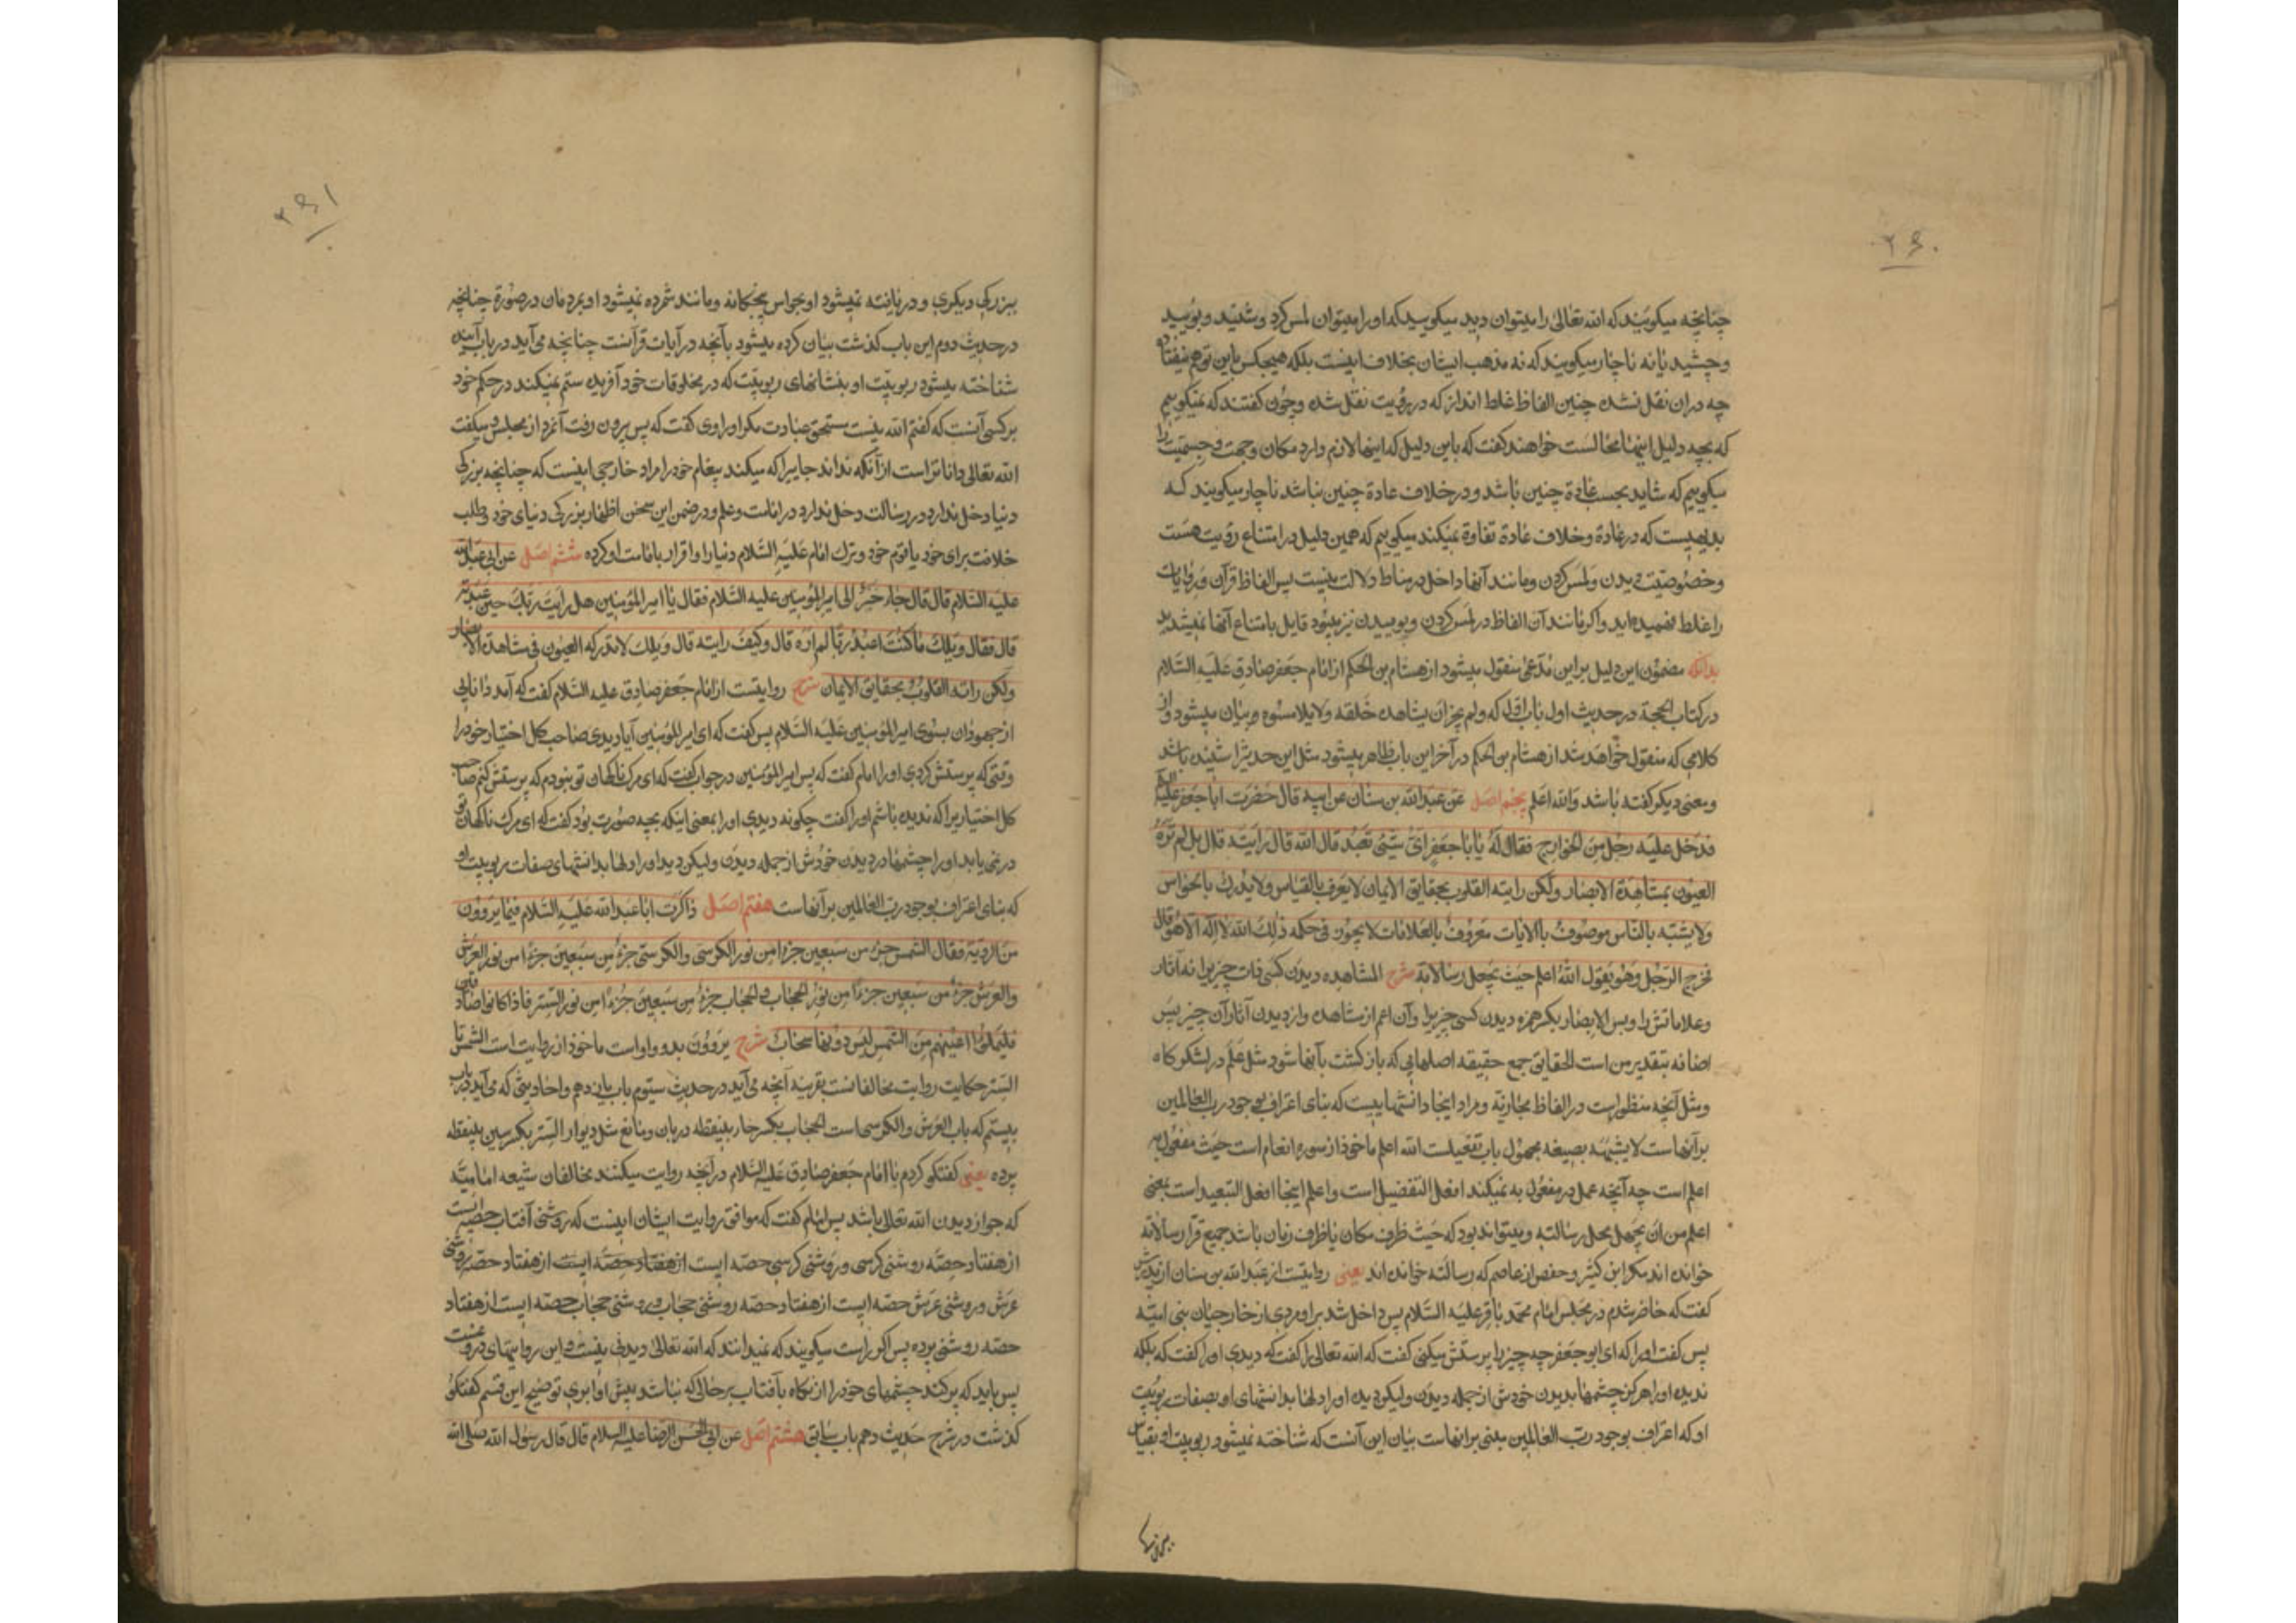 ۲۶۰
چنانچه میکویند که الله تعالی را میتوان دید میکویید که او را میتوان لمس کرد و شنید و بویید
و چشید یا نه ناچار میکویند که نه مذهب ایشان بخلاف اینست بلکه هیچکس باین توهم نیفتاده
چه در ان نقل نشده چنین الفاظ غلط انداز که در رؤیت نقل شده و چون کفتند که نمیکوییم
که بچه دلیل اینها محالست خواهند کفت که باین دلیل که اینها لازم دارد مکان و جهت و جسمیت را
میکوییم که شاید بحسب عادة چنین باشد و در خلاف عادة چنین نباشد ناچار میکویند که
بدیهیست که در عادة و خلاف عادة تفاوة نمیکند میکوییم که همین دلیل در امتناع رؤیت هست
و خصوصیت دیدن و لمس کردن و مانند آنها داخل در مناط دلالت نیست پس الفاظ قرآن و روایات
را غلط فهمیده اید و اکر مانند آن الفاظ در لمس کردن و بوییدن نیز میبود قایل بامتناع آنها نمیشدید
بدانکه مضمون این دلیل بر این مدعی منقول میشود از هشام بن الحکم از امام جعفر صادق علیه السلام
در کتاب الحجة در حدیث اول باب اول که ولم یجز ان یشاهده خلقه ولا یلامسوه و بیان میشود و از
کلامی که منقول خواهد شد از هشام بن الحکم در آخر این باب ظاهر میشود مثل این حدیث را شنیده باشد
و بمعنی دیکر کفته باشد والله اعلم پنجم اصل عن عبد الله بن سنان عن ابیه قال حضرت ابا جعفر علیه السلم
فدخل علیه رجل من الخوارج فقال له یا با جعفر ای شیئ تعبد قال الله قال رأیته قال بل لم تره
العیون بمشاهدة الابصار ولکن رأیته القلوب بحقایق الایمان لا یعرف بالقیاس ولا یدرک بالحواس
ولا یشبه بالناس موصوف بالایات معروف بالعلامات لا یجور فی حکمه ذلک الله لا اله الا هو قال
فخرج الرجل وهو یقول الله اعلم حیث یجعل رسالاته شرح المشاهده دیدن کسی ذات چیزیرا نه آثار
و علاماتش را و بس الابصار بکسر همزه دیدن کسی چیزیرا و آن اعم از مشاهده و از دیدن آثار آن چیز پس
اضافه بتقدیر من است الحقایق جمع حقیقه اصلهایی که بازکشت بآنها شود مثل علم در لشکرکاه
و مثل آنچه منظور است در الفاظ مجازیه و مراد اینجا دانشهاییست که بنای اعتراف بوجود رب العالمین
بر آنهاست لا یشبه بصیغه مجهول باب تفعیلست الله اعلم ماخوذ از سوره انعام است حیث مفعول به
اعلم است چه آنچه عمل در مفعول به نمیکند افعل التفضیل است و اعلم اینجا افعل التبعید است بمعنی
اعلم من ان یجهل محل رسالته و میتواند بود که حیث ظرف مکان یا ظرف زمان باشد جمیع قرا رسالاته
خوانده اند مکر ابن کثیر و حفص از عاصم که رسالته خوانده اند یعنی روایتست از عبد الله بن سنان از پدرش
کفت که حاضر شدم در مجلس امام محمد باقر علیه السلام پس داخل شد بر او مردی از خارجیان بنی امیه
پس کفت او را که ای ابو جعفر چه چیز را پرستش میکنی کفت که الله تعالی را کفت که دیدی او را کفت که بلکه
ندیده او را هرکز چشمها بدیدن خودش از جمله دیدن و لیکن دیده او را دلها بدانشهای او بصفات ربوبیت
او که اعتراف بوجود رب العالمین مبنی بر انهاست بیان این آنست که شناخته نمیشود ربوبیت او بقیاس
۲۶۱
ببزرکی دیکری و دریافته نمیشود او بحواس پنجکانه و مانند شمرده نمیشود او بمردمان در صورة چنانچه
در حدیث دوم این باب کذشت بیان کرده میشود بآنچه در آیات قرآنست چنانچه می آید در باب آینده
شناخته میشود ربوبیت او بنشانهای ربوبیت که در مخلوقات خود آفریده ستم نمیکند در حکم خود
بر کسی آنست که کفتم الله نیست مستحق عبادت مکر او راوی کفت که پس بیرون رفت آنمرد از مجلس و میکفت
الله تعالی داناتر است از آنکه نداند جاییرا که میکند پیغام خود را مراد خارجی اینست که چنانچه بزرکی
دنیا دخل ندارد در رسالت دخل ندارد در امامت و علم و در ضمن این سخن اظهار بزرکی دنیای خود و طلب
خلافت برای خود یا قوم خود و ترک امام علیه السلام دنیا را و اقرار بامامت او کرده ششم اصل عن ابی عبد الله
علیه السلام قال قال جاء حبر الی امیر المؤمنین علیه السلام فقال یا امیر المؤمنین هل رأیت ربک حین عبدته
قال فقال ویلک ما کنت اعبد ربا لم اره قال وکیف رأیته قال ویلک لا تدرکه العیون فی مشاهدة الابصار
ولکن رأته القلوب بحقایق الایمان شرح روایتست از امام جعفر صادق علیه السلام کفت که آمد دانایی
از جهودان بسوی امیر المؤمنین علیه السلام پس کفت که ای امیر المؤمنین آیا دیدی صاحب کل اختیار خود را
وقتی که پرستش کردی او را امام کفت که پس امیر المؤمنین در جواب کفت که ای مرک ناکهان تو نبودم که پرستش کنم صاحب
کل اختیاریرا که ندیده باشم او را کفت چکونه دیدی او را بمعنی اینکه بچه صورت بود کفت که ای مرک ناکهان تو
در نمی یابد او را چشمها در دیدن خودش از جمله دیدن و لیکن دید او را دلها بدانشهای صفات ربوبیت او
که بنای اعتراف بوجود رب العالمین بر آنهاست هفتم اصل ذاکرت ابا عبد الله علیه السلام فیما یروون
من الرویة فقال الشمس جزء من سبعین جزءا من نور الکرسی والکرسی جزء من سبعین جزءا من نور العرش
والعرش جزء من سبعین جزءا من نور الحجاب والحجاب جزء من سبعین جزءا من نور الستر فاذا کانوا صادقین
فلیملؤا اعینهم من الشمس لیس دونها سحاب شرح یروون بدو واو است ماخوذ از روایت است الشمس تا
الستر حکایت روایت مخالفانست بقرینه آنچه می آید در حدیث سیوم باب یازدهم و احادیثی که می آید در باب
بیستم که باب العرش والکرسی است الحجاب بکسر حاء بینقطه دربان و مانع مثل دیوار الستر بکسر سین بینقطه
پرده یعنی کفتکو کردم با امام جعفر صادق علیه السلام در آنچه روایت میکنند مخالفان شیعه امامیه
که جواز دیدن الله تعالی باشد پس امام کفت که موافق روایت ایشان اینست که روشنی آفتاب حصه ایست
از هفتاد حصه روشنی کرسی و روشنی کرسی حصه ایست از هفتاد حصه ایست از هفتاد حصه روشنی
عرش و روشنی عرش حصه ایست از هفتاد حصه روشنی حجاب و روشنی حجاب حصه ایست از هفتاد
حصه روشنی پرده پس اکر راست میکویند که نمیدانند که الله تعالی دیدنی نیست و این روایتهای دروغست
پس باید که پر کنند چشمهای خود را از نکاه بآفتاب بر حالی که نباشد پیش او ابری توضیح این قسم کفتکو
کذشت در شرح حدیث دهم باب سابق هشتم اصل عن ابی الحسن الرضا علیه السلام قال قال رسول الله صلی الله